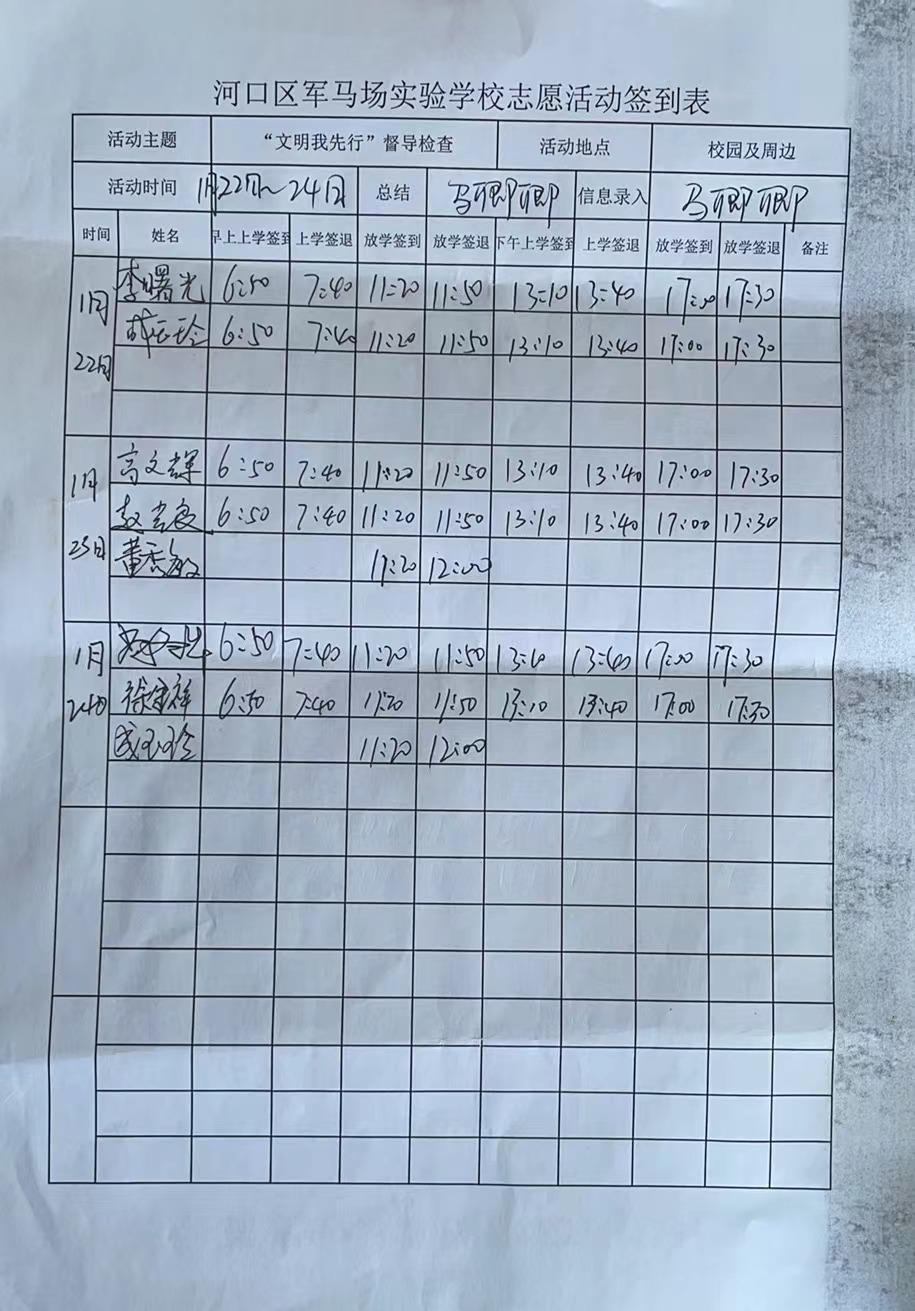 河口区军马场实验学校志愿活动签到表
活动主题 “文明我先行”督导检查 活动地点 校园及周边
活动时间 1月22日~24日 总结 马 信息录入 马
时间 姓名 早上上学签到 上学签退 放学签到 放学签退 下午上学签到 上学签退 放学签到 放学签退 备注
1月22日 李曙光 6:50 7:40 11:20 11:50 13:10 13:40 17:00 17:30
6:50 7:40 11:20 11:50 13:10 13:40 17:00 17:30
1月23日 高文辉 6:50 7:40 11:20 11:50 13:10 13:40 17:00 17:30
6:50 7:40 11:20 11:50 13:10 13:40 17:00 17:30
董秀敏 11:20 12:00
1月24日 6:50 7:40 11:20 11:50 13:10 13:40 17:00 17:30
徐宝祥 6:50 7:40 11:20 11:50 13:10 13:40 17:00 17:30
11:20 12:00